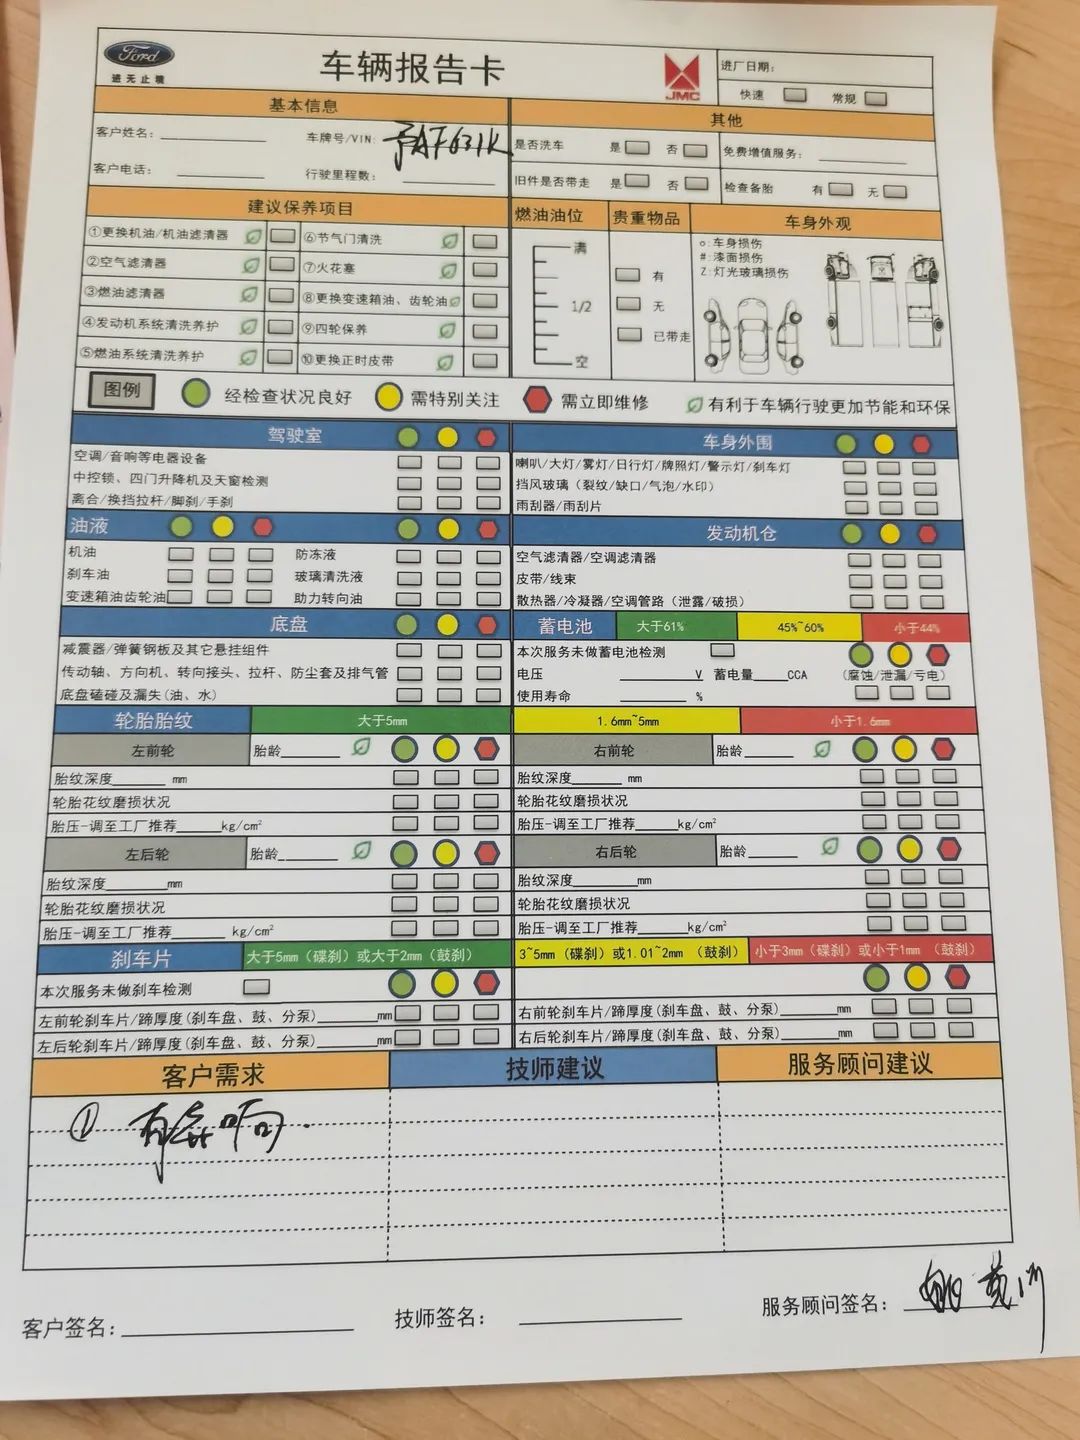 Ford
进无止境
车辆报告卡
JMC
进厂日期:
快速 常规
基本信息
其他
客户姓名: 车牌号/VIN: AF631K
是否洗车 是 否 免费增值服务:
客户电话: 行驶里程数:
旧件是否带走 是 否 检查备胎 有 无
建议保养项目
燃油油位 贵重物品 车身外观
①更换机油/机油滤清器 ⑥节气门清洗
②空气滤清器 ⑦火花塞
③燃油滤清器 ⑧更换变速箱油、齿轮油
④发动机系统清洗养护 ⑨四轮保养
⑤燃油系统清洗养护 ⑩更换正时皮带
满
1/2
空
有
无
已带走
o:车身损伤
#:漆面损伤
Z:灯光玻璃损伤
图例 经检查状况良好 需特别关注 需立即维修 有利于车辆行驶更加节能和环保
驾驶室
空调/音响等电器设备
中控锁、四门升降机及天窗检测
离合/换挡拉杆/脚刹/手刹
车身外围
喇叭/大灯/雾灯/日行灯/牌照灯/警示灯/刹车灯
挡风玻璃（裂纹/缺口/气泡/水印）
雨刮器/雨刮片
油液
机油 防冻液
刹车油 玻璃清洗液
变速箱油齿轮油 助力转向油
发动机仓
空气滤清器/空调滤清器
皮带/线束
散热器/冷凝器/空调管路（泄露/破损）
底盘
减震器/弹簧钢板及其它悬挂组件
传动轴、方向机、转向接头、拉杆、防尘套及排气管
底盘磕碰及漏失(油、水)
蓄电池 大于61% 45%~60% 小于44%
本次服务未做蓄电池检测
电压 V 蓄电量 CCA （腐蚀/泄漏/亏电）
使用寿命 %
轮胎胎纹 大于5mm 1.6mm~5mm 小于1.6mm
左前轮 胎龄
胎纹深度 mm
轮胎花纹磨损状况
胎压-调至工厂推荐 kg/cm²
右前轮 胎龄
胎纹深度 mm
轮胎花纹磨损状况
胎压-调至工厂推荐 kg/cm²
左后轮 胎龄
胎纹深度 mm
轮胎花纹磨损状况
胎压-调至工厂推荐 kg/cm²
右后轮 胎龄
胎纹深度 mm
轮胎花纹磨损状况
胎压-调至工厂推荐 kg/cm²
刹车片 大于5mm（碟刹）或大于2mm（鼓刹） 3~5mm（碟刹）或1.01~2mm （鼓刹） 小于3mm（碟刹）或小于1mm （鼓刹）
本次服务未做刹车检测
左前轮刹车片/蹄厚度(刹车盘、鼓、分泵) mm
左后轮刹车片/蹄厚度(刹车盘、鼓、分泵) mm
右前轮刹车片/蹄厚度(刹车盘、鼓、分泵) mm
右后轮刹车片/蹄厚度(刹车盘、鼓、分泵) mm
客户需求 技师建议 服务顾问建议
① 有异响.
客户签名: 技师签名: 服务顾问签名: